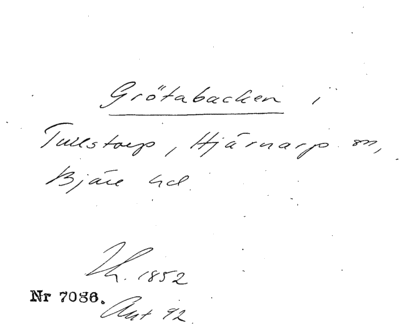 Grötabacken i
Tullstorp, Hjärnarp sn,
Bjäre hd.
Lh. 1852
Nr 7086.
Ant 92.